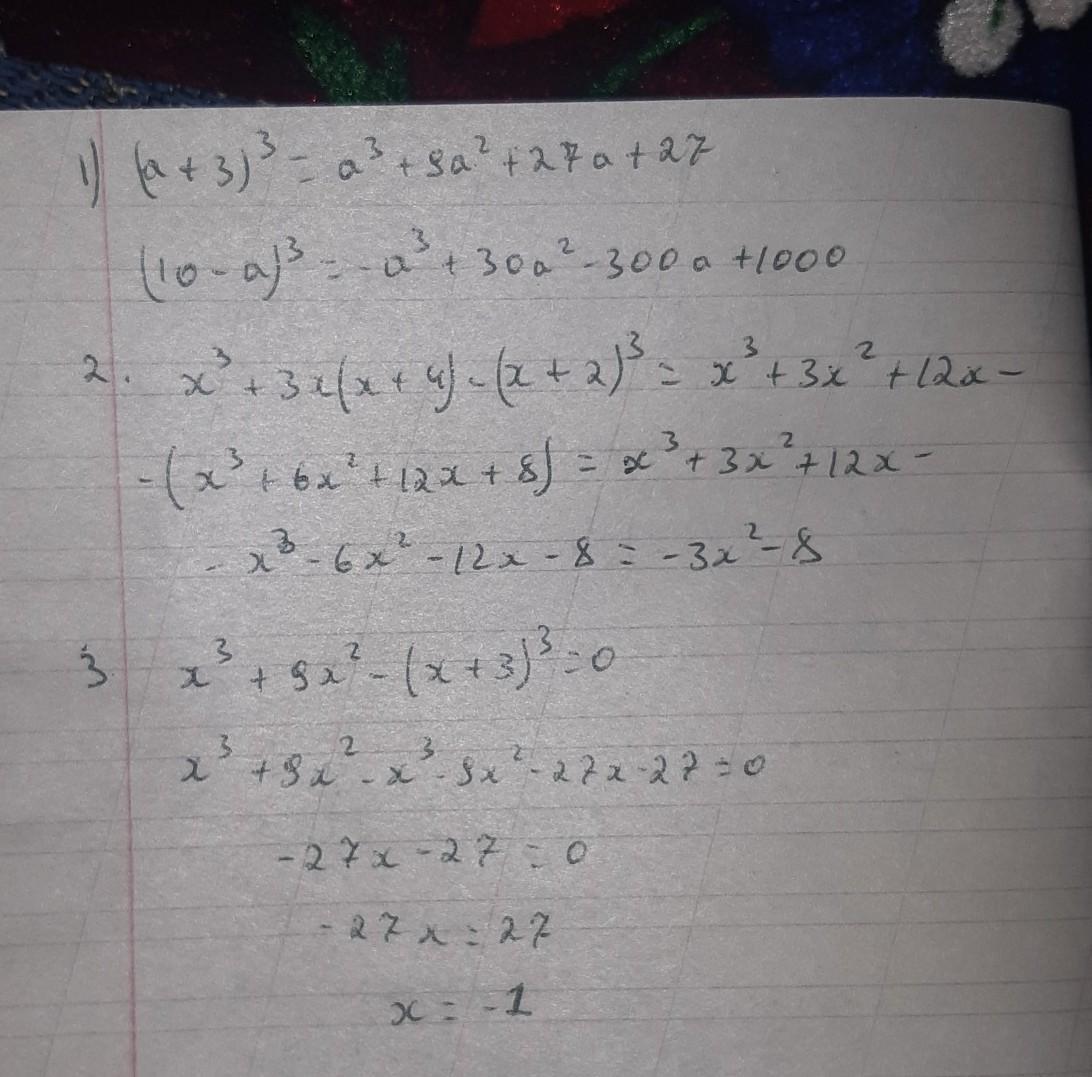 1) (a + 3)³ = a³ + 9a² + 27a + 27
(10 - a)³ = -a³ + 30a² - 300a + 1000
2. x³ + 3x(x + 4) - (x + 2)³ = x³ + 3x² + 12x -
- (x³ + 6x² + 12x + 8) = x³ + 3x² + 12x -
- x³ - 6x² - 12x - 8 = -3x² - 8
3. x³ + 9x² - (x + 3)³ = 0
x³ + 9x² - x³ - 9x² - 27x - 27 = 0
-27x - 27 = 0
-27x = 27
x = -1